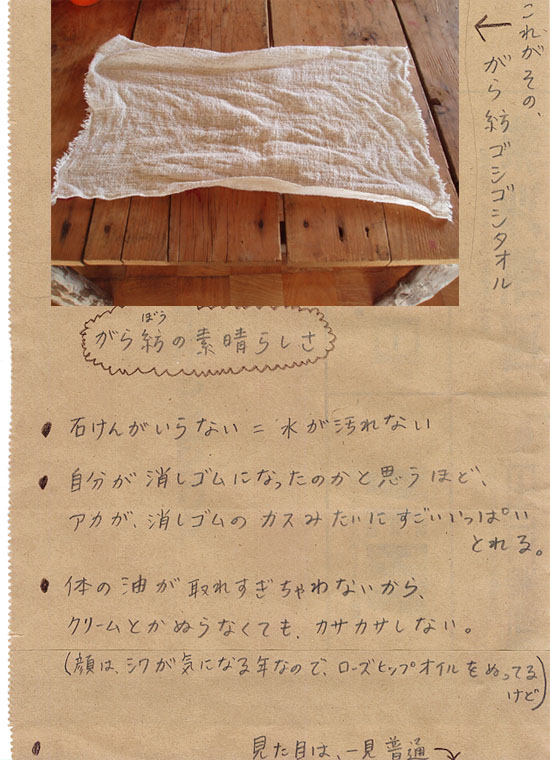 これがその、
がら紡ゴシゴシタオル
ぼう
がら紡の素晴らしさ
石けんがいらない = 水が汚れない
自分が消しゴムになったのかと思うほど、
アカが、消しゴムのカスみたいにすごいいっぱい
とれる。
体の油が取れすぎちゃわないから、
クリームとかぬらなくても、カサカサしない。
(顔は、シワが気になる年なので、ローズヒップオイルをぬってる
けど)
見た目は、一見普通